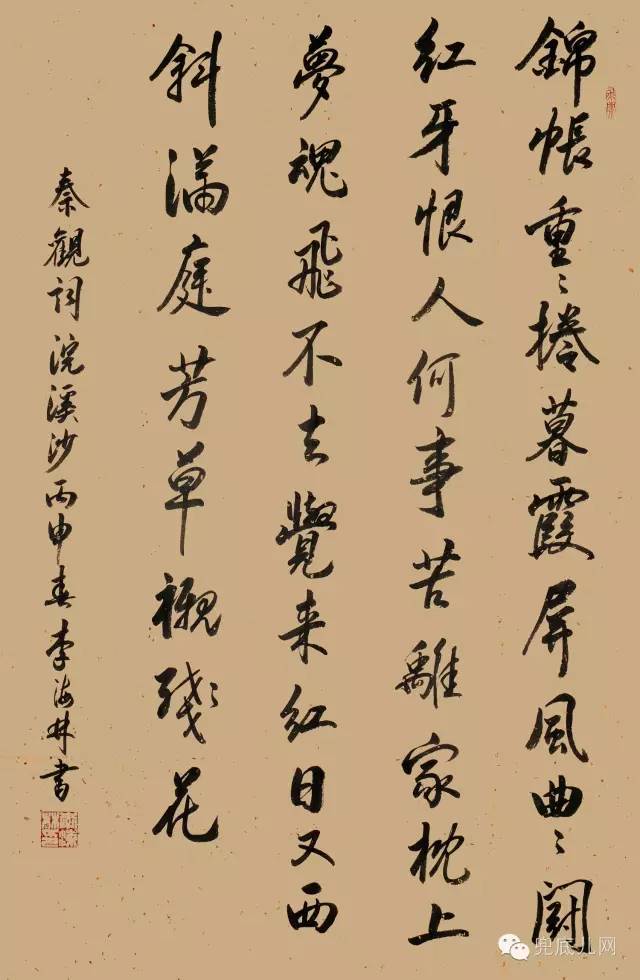 錦帳重〻捲暮霞屏風曲〻鬪
紅牙恨人何事苦離家枕上
夢魂飛不去覺来紅日又西
斜滿庭芳草襯殘〻花
秦觀詞浣溪沙丙申春李海林書
兜底儿网